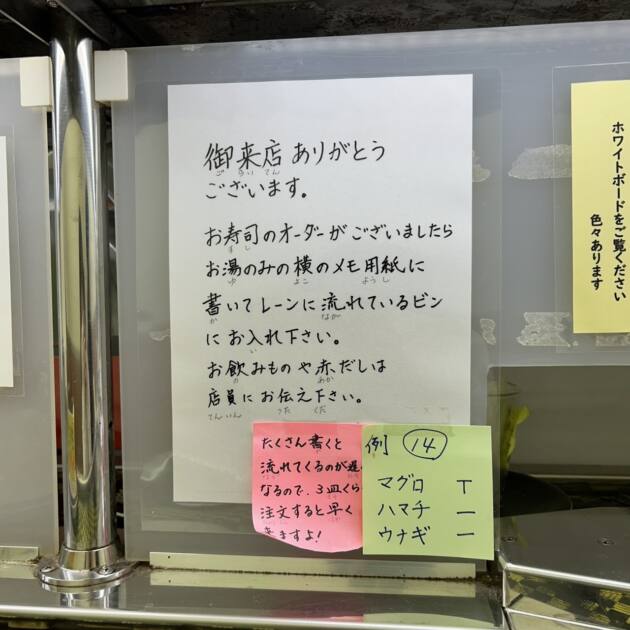 御来店 ありがとう
ご らい てん
ございます。
お寿司のオーダーがございましたら
すし
お湯のみの横のメモ用紙に
ゆ よこ ようし
書いてレーンに流れているビン
か なが
にお入れ下さい。
い
お飲みものや赤だしは
の あか
店員にお伝え下さい。
てんいん つた くだ
たくさん書くと
流れてくるのが遅
なるので、3皿くら
注文すると早く
きますよ!
例 14
マグロ T
ハマチ 一
ウナギ 一
ホワイトボードをご覧ください
色々あります